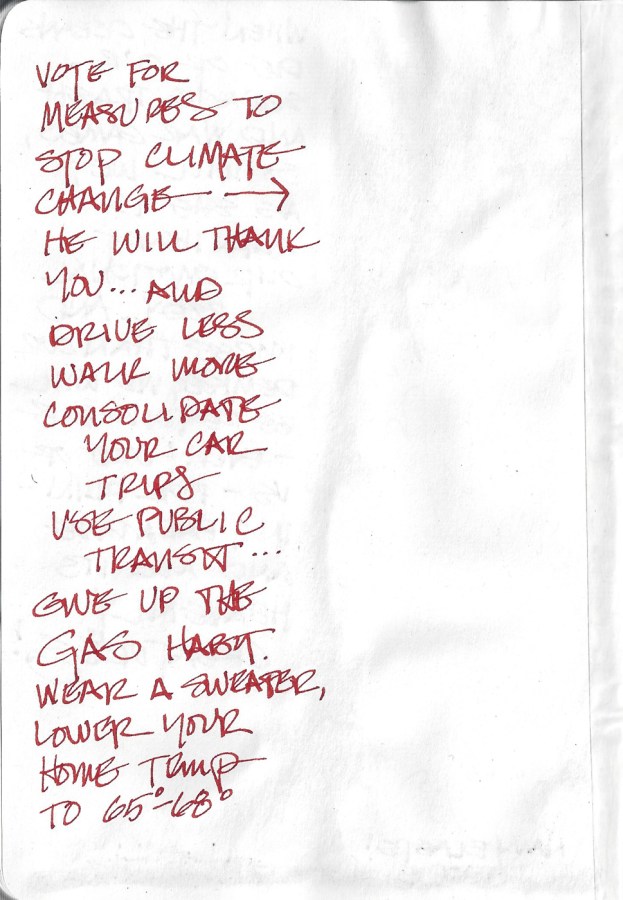 VOTE FOR
MEASURES TO
STOP CLIMATE
CHANGE →
HE WILL THANK
YOU... AND
DRIVE LESS
WALK MORE
CONSOLIDATE
YOUR CAR
TRIPS
USE PUBLIC
TRANSIT...
GIVE UP THE
GAS HABIT.
WEAR A SWEATER,
LOWER YOUR
HOME TEMP
TO 65°-68°